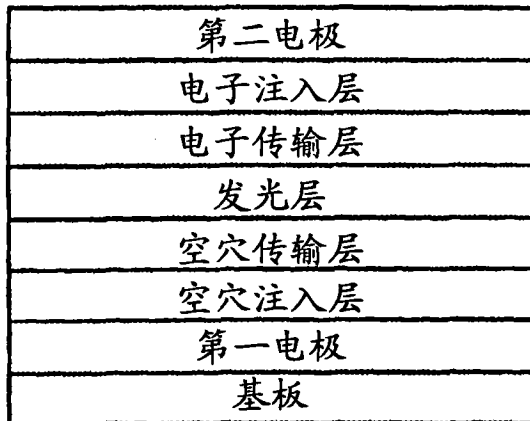 第二电极
电子注入层
电子传输层
发光层
空穴传输层
空穴注入层
第一电极
基板